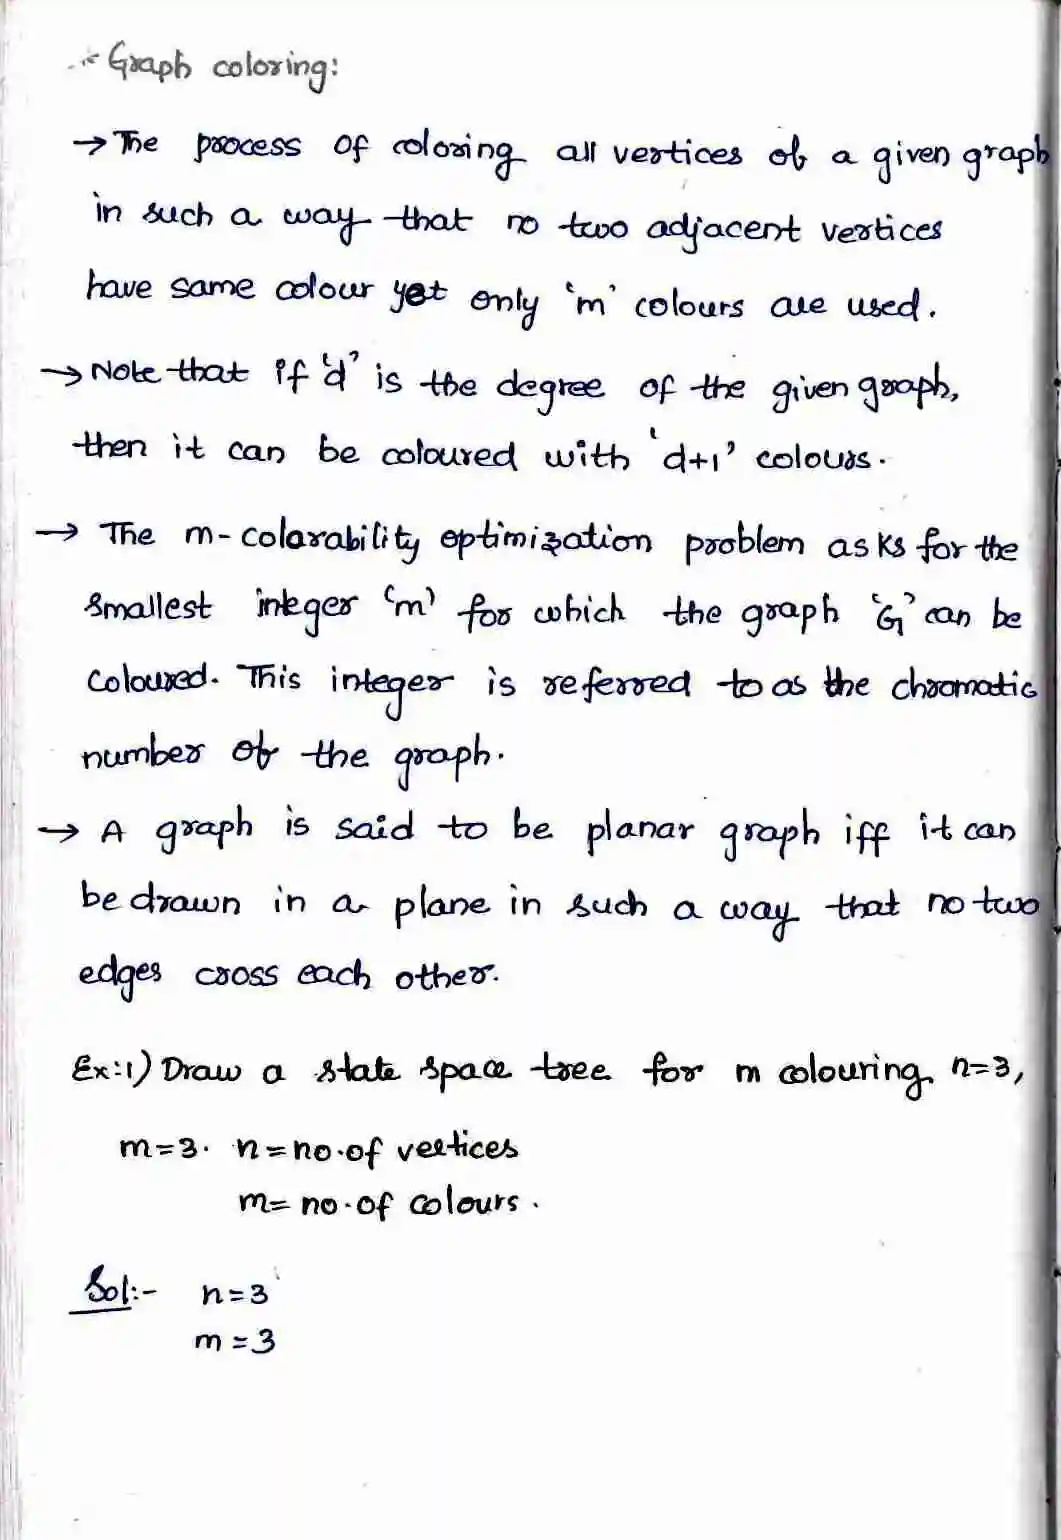 * Graph coloring:
→ The process of coloring all vertices of a given graph
in such a way that no two adjacent vertices
have same colour yet only 'm' colours are used.
→ Note that if 'd' is the degree of the given graph,
then it can be coloured with 'd+1' colours.
→ The m-colorability optimization problem asks for the
smallest integer 'm' for which the graph 'G' can be
coloured. This integer is referred to as the chromatic
number of the graph.
→ A graph is said to be planar graph iff it can
be drawn in a plane in such a way that no two
edges cross each other.
Ex:1) Draw a state space tree for m colouring n=3,
m=3. n=no.of vertices
m=no.of colours.
Sol:- n=3
m=3